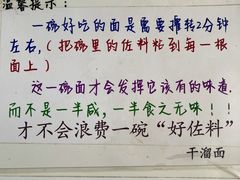 温馨提示：
一碗好吃的面是需要搅转2分钟
左右，（把碗里的佐料粘到每一根
面上）
这一碗面才会发挥它该有的味道.
而不是一半咸，一半食之无味！！
才不会浪费一碗“好佐料”
干溜面